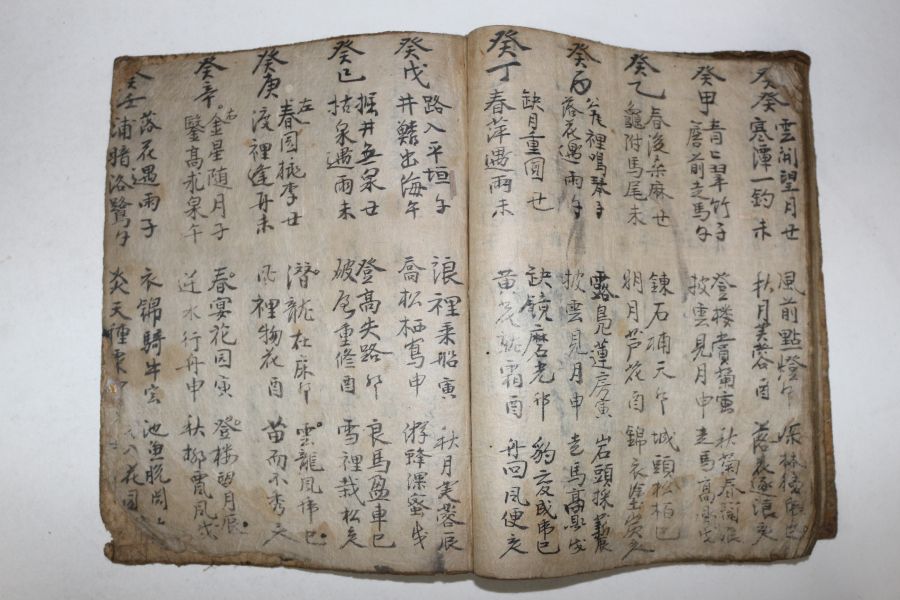 癸癸
雲開望月丑 風前點燈卯 深林棲巳
寒潭一釣未 秋月芙蓉酉 落花逐浪亥
癸甲
青翠竹子 登樓賞菊寅 秋菊春開辰
簷前走馬午 披雲見月申 走馬高戌
癸乙
春後桑麻丑 鍊石補天卯 城頭松柏巳
龜附馬尾未 明月芦花酉 錦衣亥
癸丙
花裡鳴琴子 露冕蓮房寅 岩頭採辰
落花遇雨午 披雲見月申 走馬高戌
癸丁
缺月重圓丑 缺镜磨光卯 豹变成席巳
春萍遇雨未 黃花霜酉 舟回风便亥
癸戊
路入平垣子 浪裡乘船寅 秋月芙蓉辰
井鱔出海午 喬松栖鳶申 游蜂課蜜戌
癸己
掘井無泉丑 登高失路卯 良馬盈車巳
枯泉遇雨未 破屋重修酉 雪裡栽松亥
癸庚
左春園桃李丑 潛龍在麻卯 雲龍風席巳
渡裡逢舟未 风裡物花酉 苗而不秀亥
癸辛
右金星随月子 春宴花园寅 登楼望月辰
鑿高求泉午 逆水行舟申 秋柳风戌
癸壬
落花遇雨子 衣錦騎牛寅 池魚晚
浦暗洛鷺午 炎天種 花園